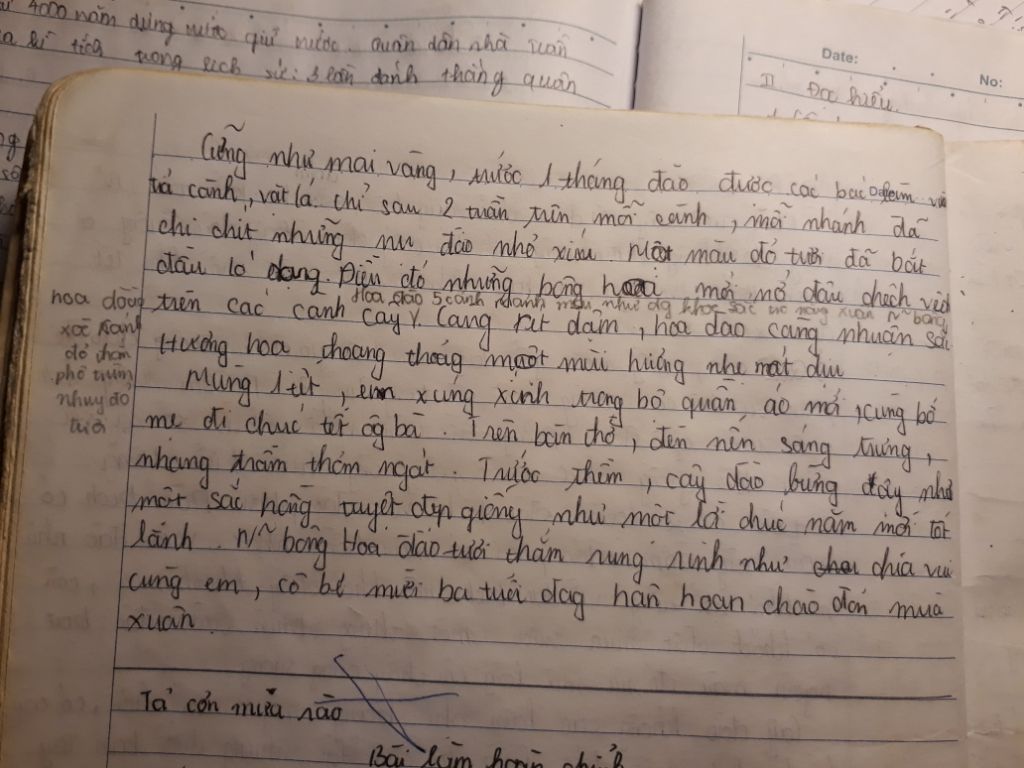 4000 năm dựng nước giữ nước. quân dân nhà Trần
tích trong lịch sử: 3 lần đánh thắng quân
Date:
No:
II Đọc hiểu.
Cũng như mai vàng, trước 1 tháng đào được các bác đem về
tỉa cành, vặt lá. chỉ sau 2 tuần trên mỗi cành, mỗi nhánh đã
chi chít những nụ đào nhỏ xíu Một màu đỏ tươi đã bắt
đầu ló dạng. Điền đó những bông hoa mới nở đầu chếch
hoa đào 5 cánh mỏng manh như
trên các cành cây v. Càng rét đậm, hoa đào càng nhuần sắc
hoa đồng
xoè rộng
đỏ thắm
phô trùm
nhuỵ đỏ
tươi
Hương hoa thoang thoảg một mùi hương nhẹ mát dịu
Mùng 1 tết, em xúng xính trong bộ quần áo mới, cùng bố
mẹ đi chúc tết ôg bà. Trên bàn thờ, đèn nến sáng trưng,
nhang trầm thơm ngát. Trước thềm, cây đào bừng dậy như
một sắc hồng tuyệt đẹp giống như một lời chúc năm mới tốt
lành. N/~ bông Hoa đào tươi thắm rung rinh như chia vui
cùng em, cô bé mười ba tuổi đag hân hoan chào đón mùa
xuân.
Tả cơn mưa rào
Bài làm hoàn chỉnh